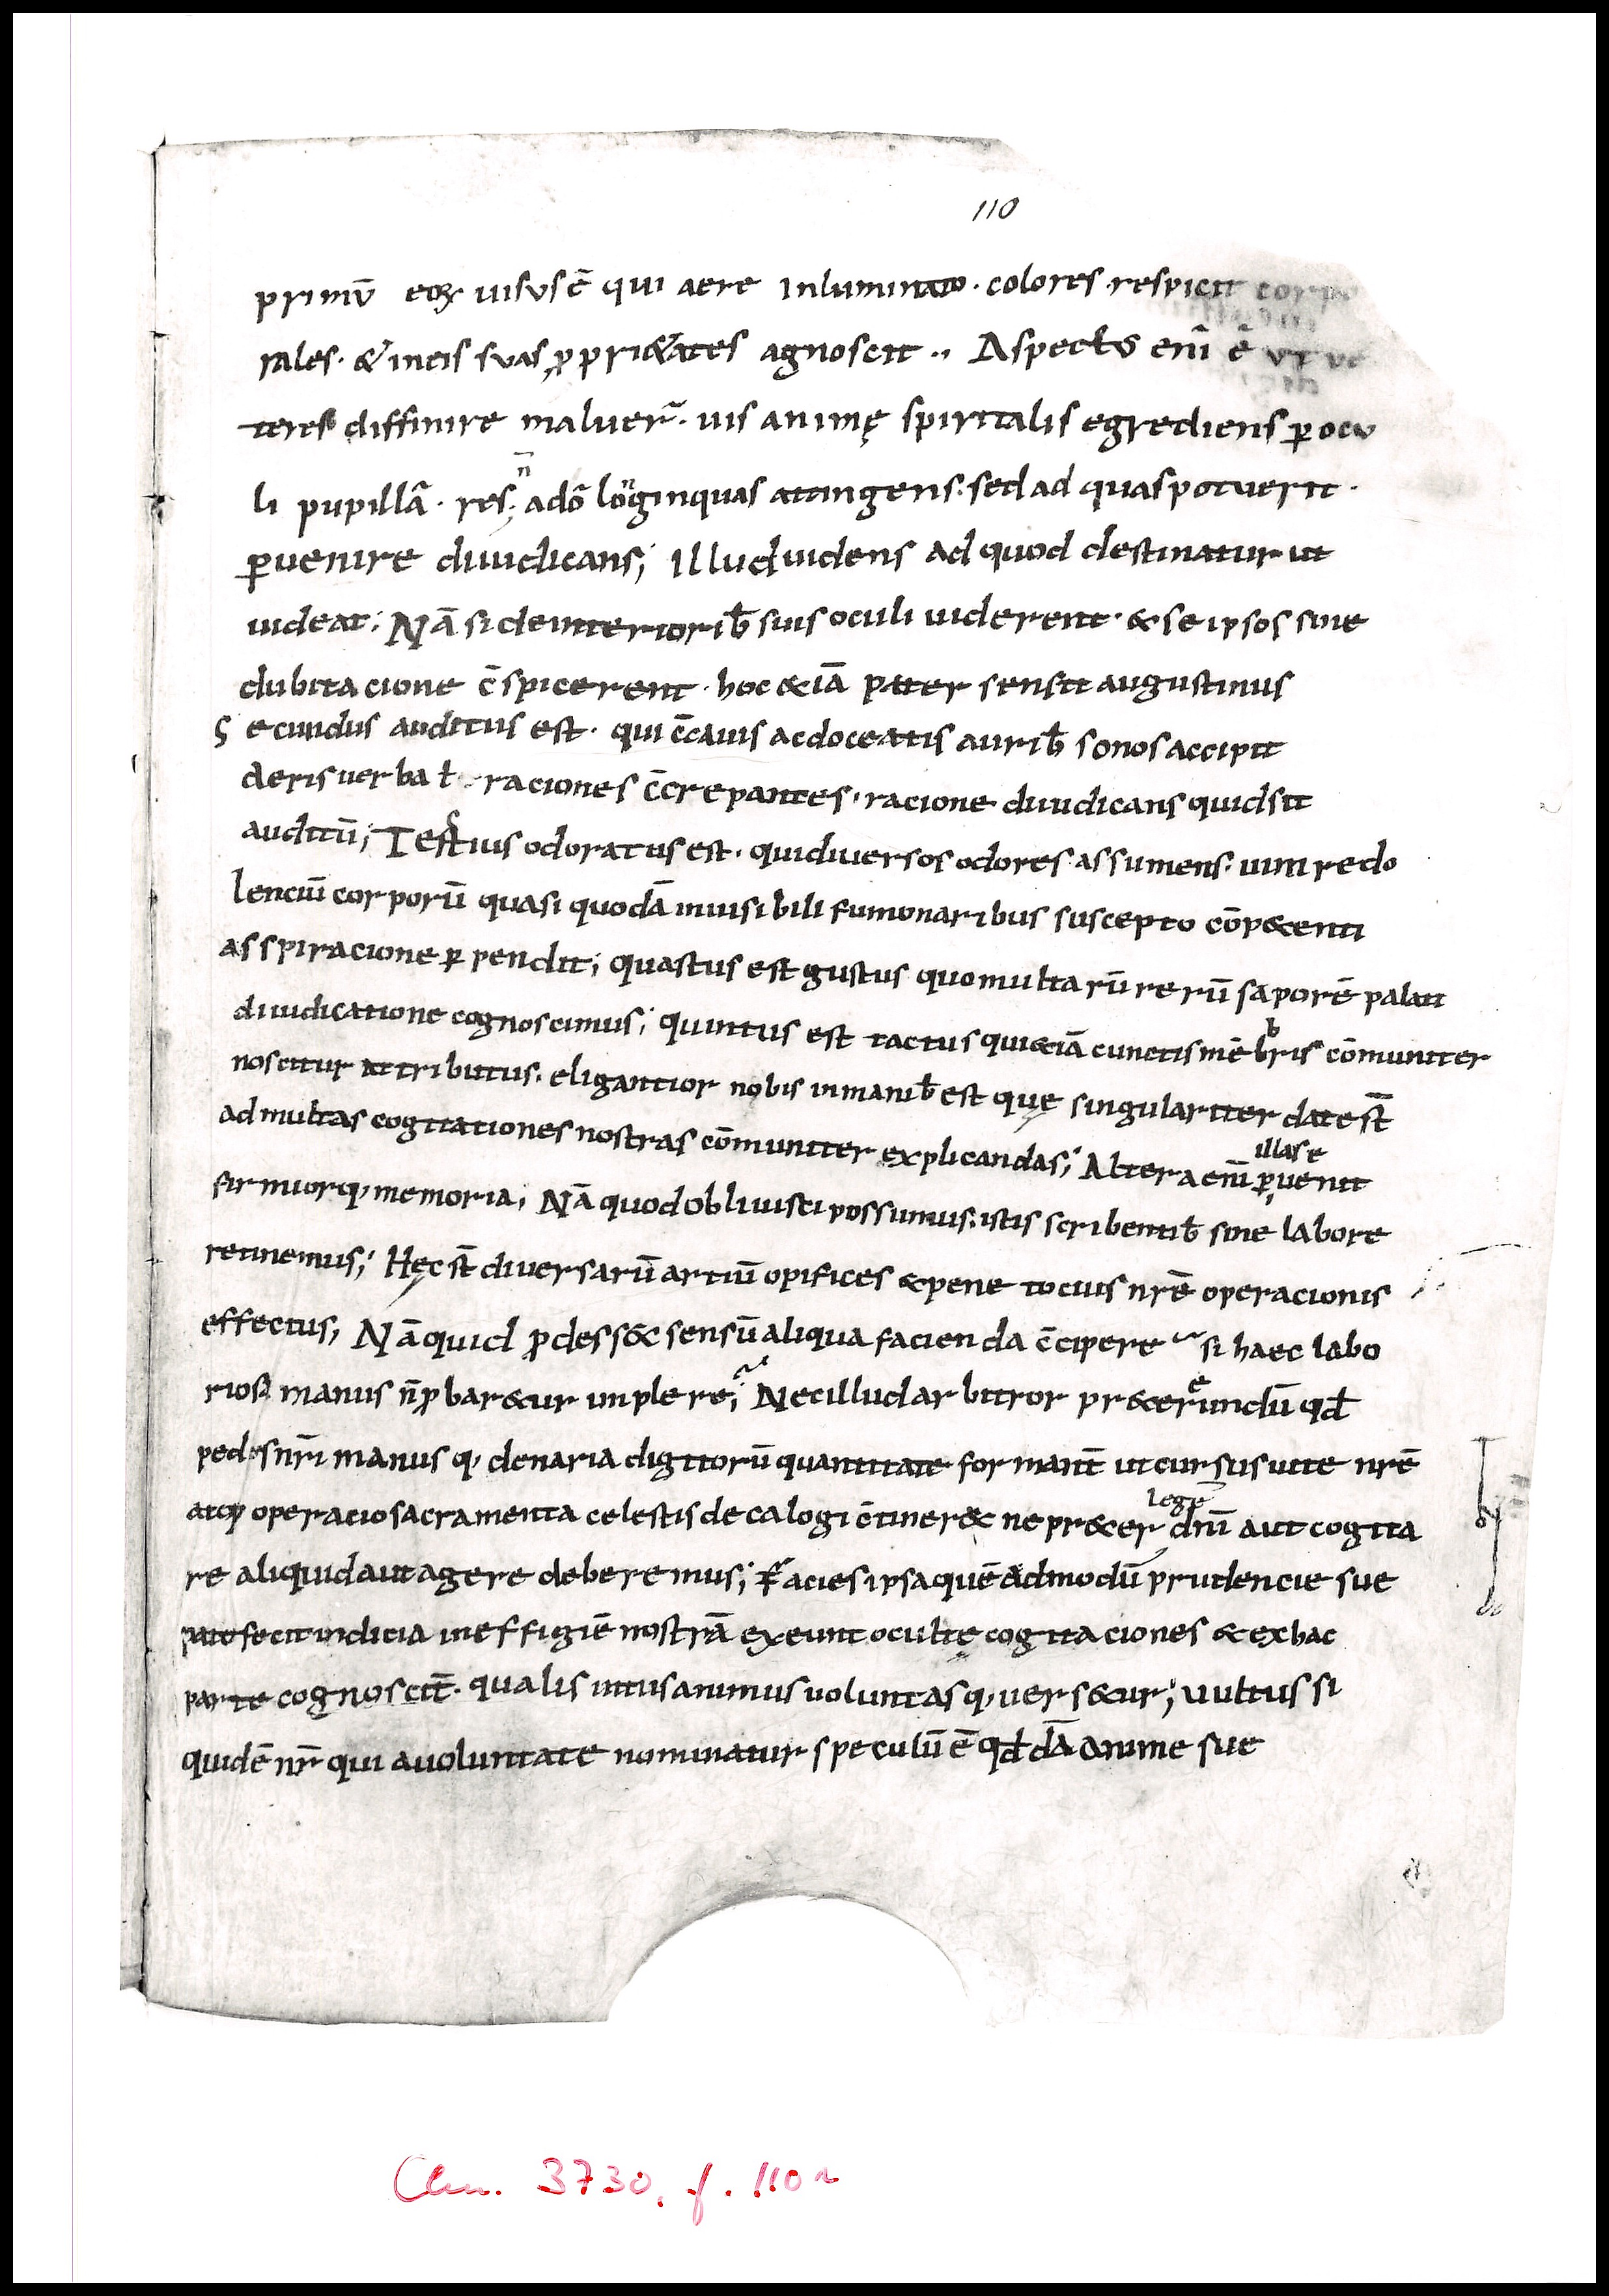 110
primū eoꝝ uisus ē qui aere inluminato · colores respicit corpo
rales · & in eis suas ꝓprietates agnoscit ·, Aspectus enī ē ut ue
teres diffinire maluer̄ · uis animę spiritalis egrediens ꝑ ocu
li pupillā · res · n̄ adō lon̄ginquas attingens · sed ad quas potuerit ·
ꝑuenire diiudicans; Illud uidens ad quod destinatur ut
uideat; Nā si de interiorib; suis oculi uiderent · & se ipsos sine
dubitacione c̄spicerent · hoc &iā pater sensit augustinus
Secundus auditus est · qui c̄cauis ac doceatis aurib; sonos accipit
aeris uerba ł raciones c̄crepantes · racione diiudicans quid sit
auditū; Tertius odoratus est · qui diuersos odores assumens · uim redo
lenciū corporū quasi quodā inuisibili fumo naribus suscepto cōp&enti
asspiracione ꝑpendit; quartus est gustus quo multarū rerū saporē palati
diiudicatione cognoscimus; quintus est tactus qui &iā cunctis mēbris cōmuniter
noscitur attributus · eligantior nobis in manib; est quę singulariter date st̄
ad multas cogitationes nostras cōmuniter explicandas; Altera enī ꝑuenit
illas e
firmiorq; memoria; Nā quod obliuisci possumus · istis scribentib; sine labore
retinemus; Hęc st̄ diuersarū artiū opifices & pene tocius nr̄ē operacionis
effectus; Nā quid ꝓdess& sensū aliqua facienda c̄cipere si haec labo
riosa manus n̄ ꝓbar&ur implere; Nec illud arbitror pr&ereundū qd̄
pedes nr̄i manusq; denaria digitorū quantitate formant̄ ut cursus uite nr̄ē
atq; operacio sacramenta celestis decalogi c̄tiner& ne pr&er legē dnī aut cogita
re aliquid aut agere deberemus; Facies ipsa quēadmodū prudencie sue
patefecit indicia in effigiē nostrā exeunt ocultę cogitaciones & ex hac
parte cognoscit̄ · qualis intus animus uoluntasq; uers&ur; uultus si
quidē nr̄ qui a uoluntate nominatur speculū ē qd̄dā anime sue
Clm. 3730, f. 110r